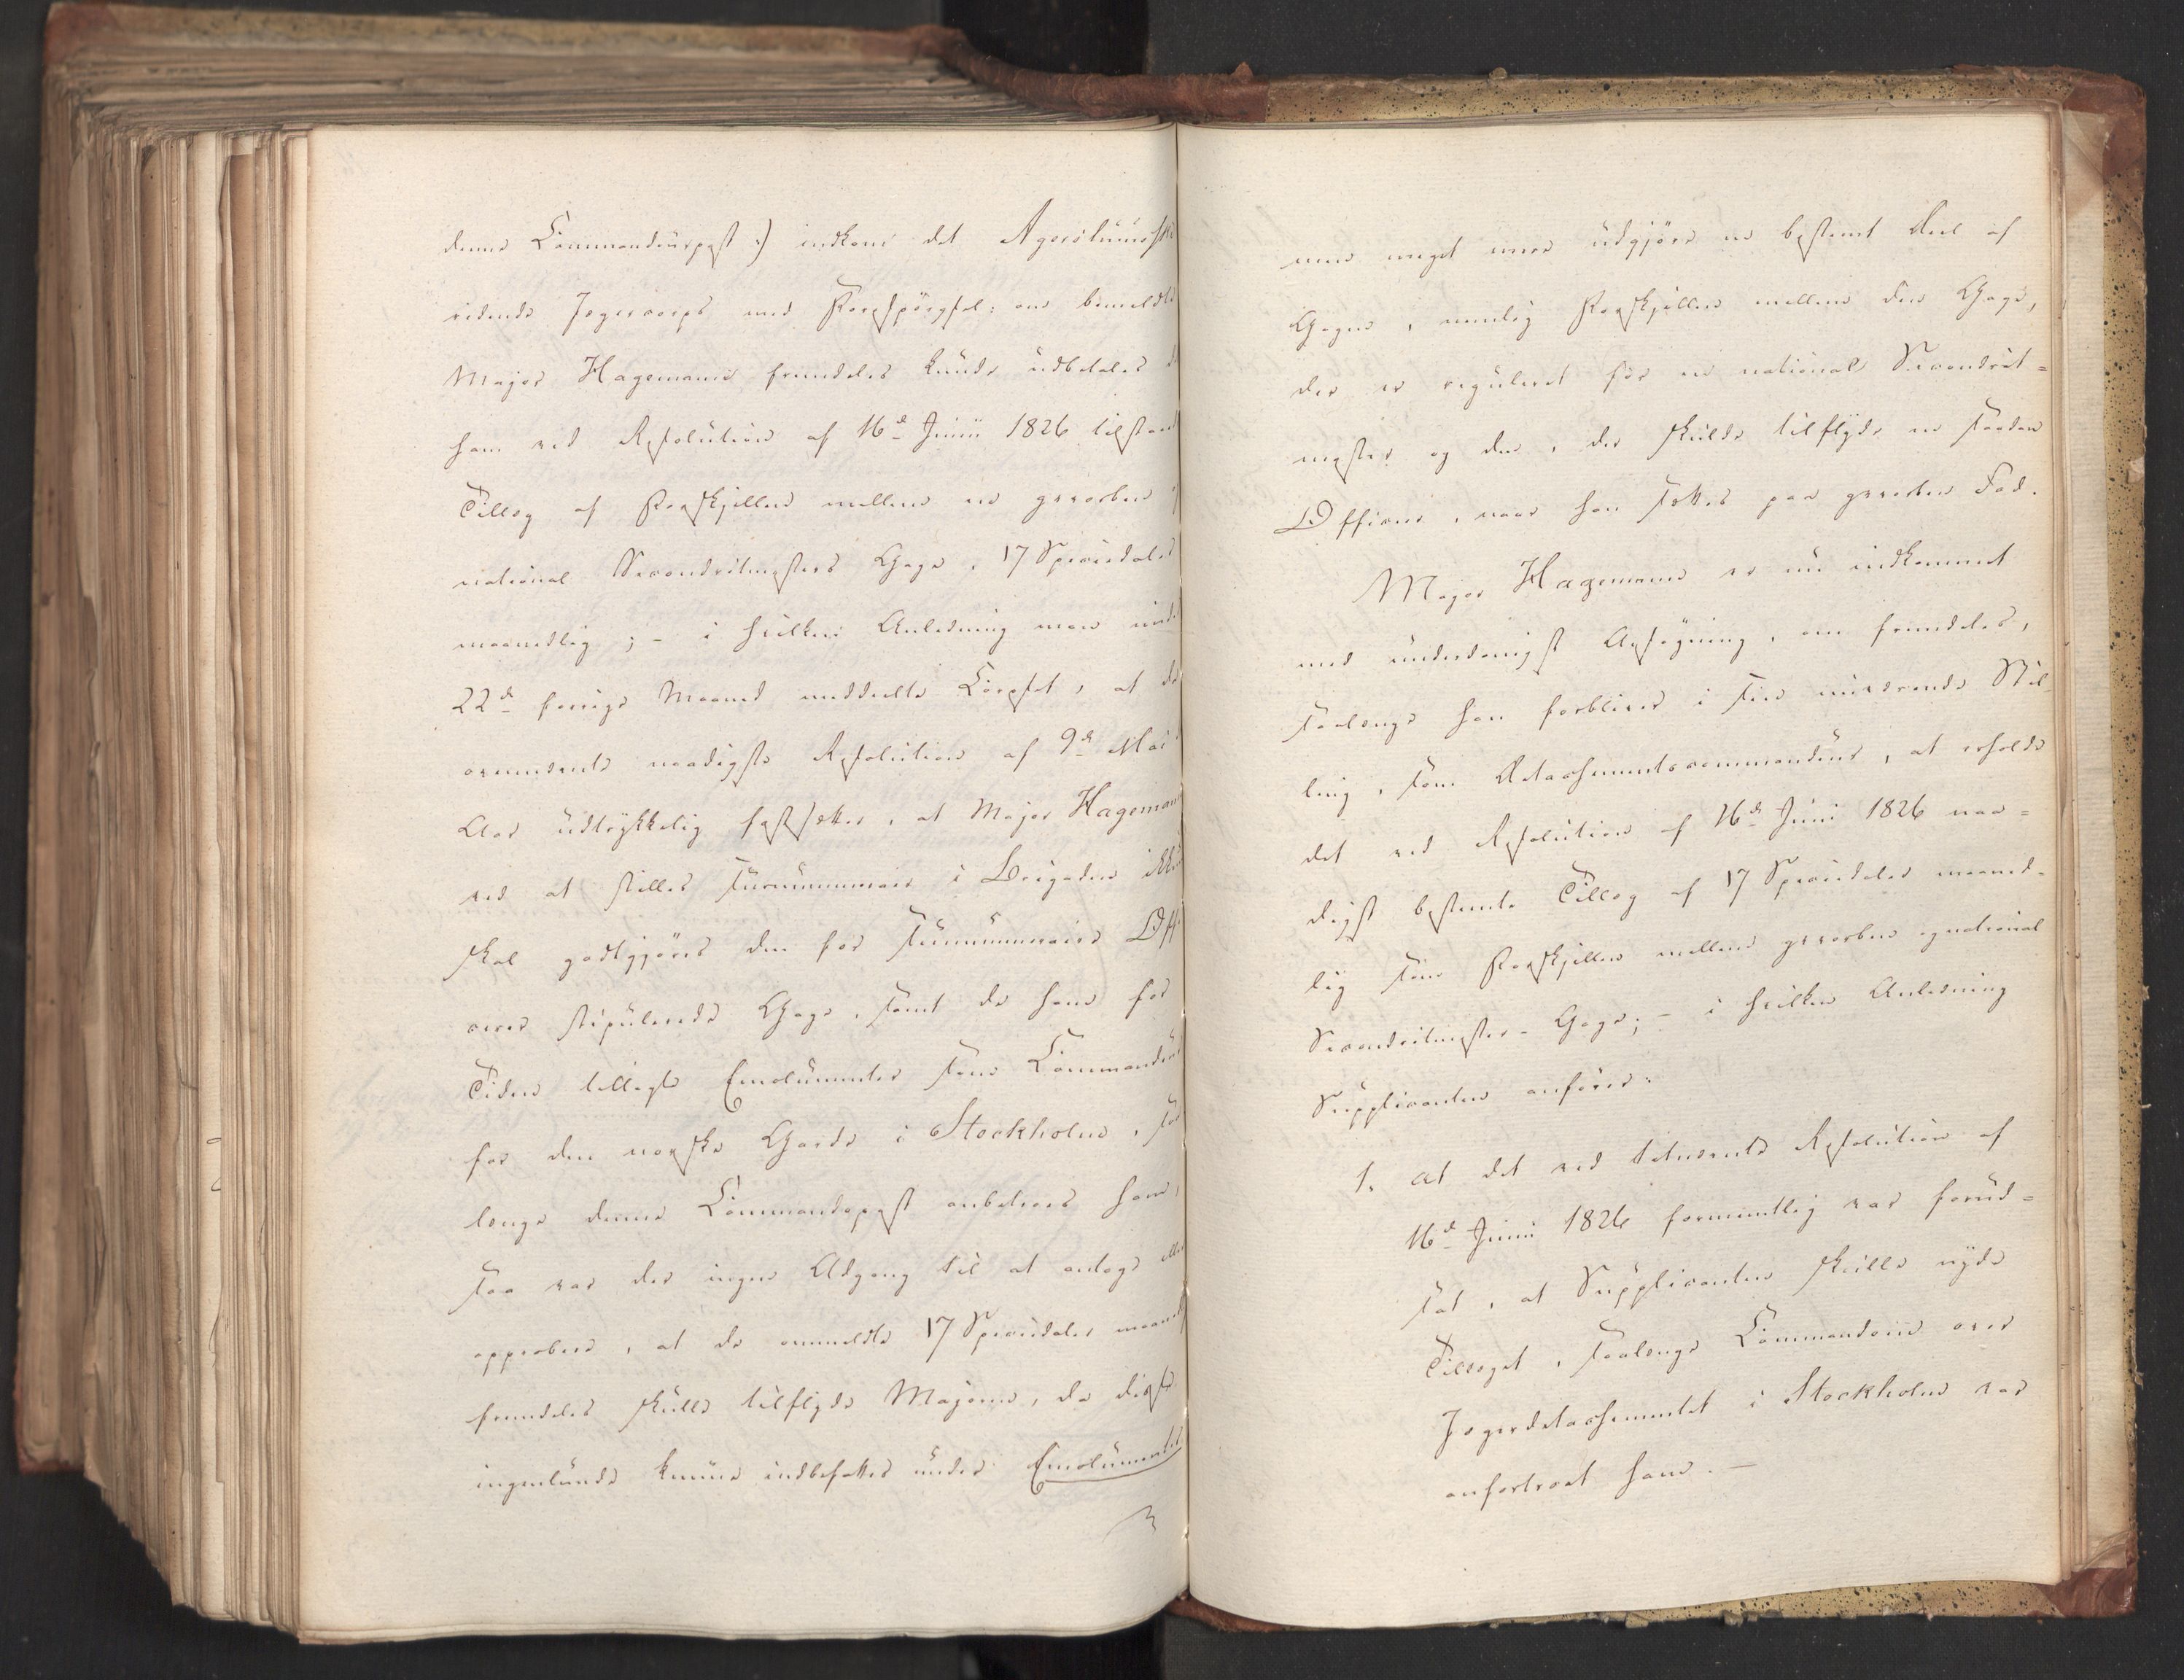 denne Commandeurpost :/) indkom det Agershuusiske
ridende Jægercorps med Forespørgsel: om bemeldte
Major Hagemann fremdeles kunde udbetales det
ham ved Resolution af 16de Junii 1826 tilstaaede
Tillæg af Forskjellen mellem en geworben og
national Secondritmesters Gage, 17 Speciedaler
maanedlig; - i hvilken Anledning man under
22de forrige Maaned meddeelte Corpset, at da
ovennævnte naadigste Resolution af 9de Mai d.
Aar udtrykkelig fastsetter, at Major Hagemann
ved at stilles surnummerair i Brigaden ikke
skal godtgjøres den for surnummeraire Offi-
cerer stipulerede Gage, samt de ham for
Tiden tillagte Emolumenter som Commandeur
for den norske Garde i Stockholm, saa
længe denne Commandopost anbetroes ham,
saa var der ingen Adgang til at antage eller
approbere, at de ommeldte 17 Speciedaler maanedl.
fremdeles skulle tilflyde Majoren, da disse
ingenlunde kunne indbefattes under Emolumenter
men meget mere udgjøre en bestemt Deel af
Gagen, nemlig Forskjellen mellem den Gage,
der er reguleret for en national Secondrit=
mester og den, der skulde tilflyde en saadan
Officier, naar han sættes paa geworben Fod.
Major Hagemann er nu indkommet
med underdanigst Ansøgning, om fremdeles,
saalænge han forbliver i sin nuværende Stil-
ling, som Detachementscommandeur, at erholde
det ved Resolution af 16de Junii 1826 naa=
digst bestemte Tillæg af 17 Speciedaler maaned-
lig som Forskjellen mellem geworben og national
Secondritmester-Gage; - i hvilken Anledning
Supplicanten anfører:
1. at det ved bemeldte Resolution af
16de Junii 1826 formentlig var forud=
sat, at Supplicanten skulle nyde
Tillæget, saalænge Commandoen over
Jægerdetachementet i Stockholm var
anfortroet ham. -